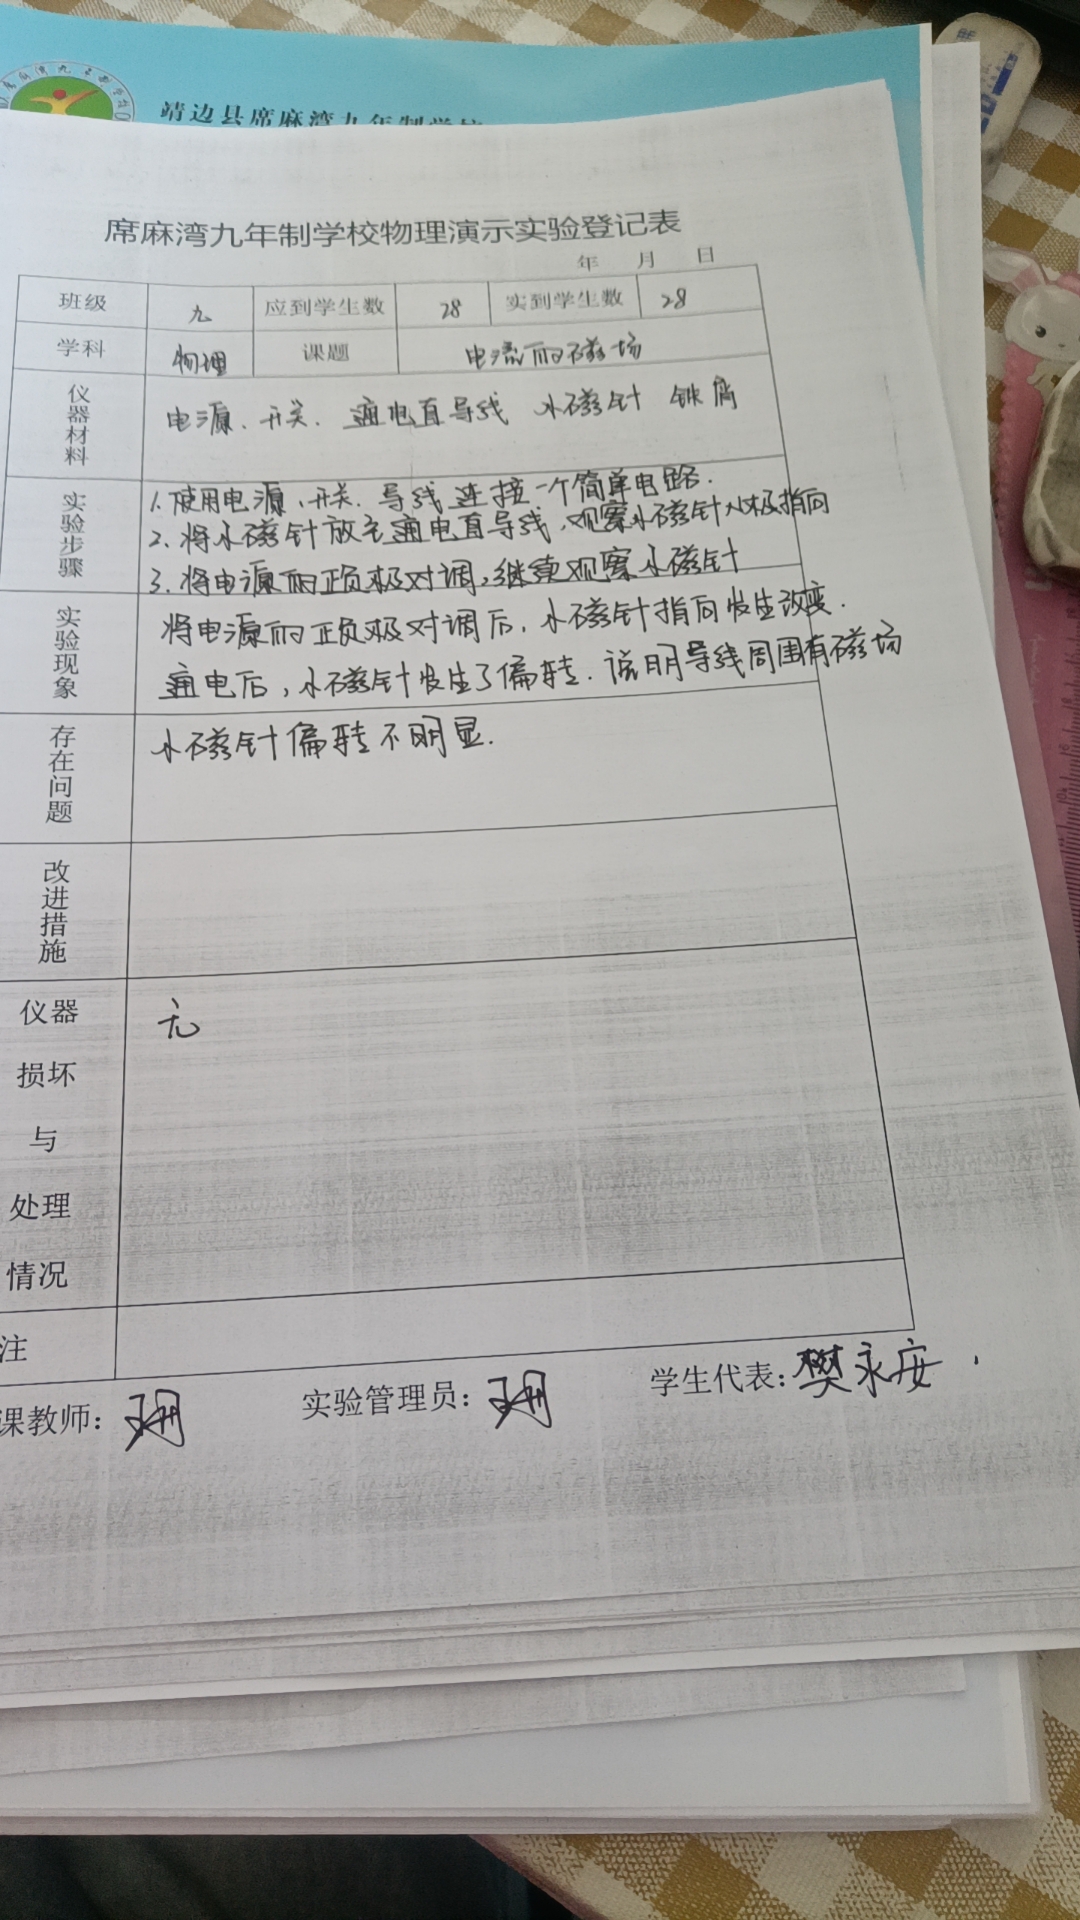 靖边县席麻湾九年制学校
席麻湾九年制学校物理演示实验登记表
年 月 日
班级 九 应到学生数 28 实到学生数 28
学科 物理 课题 电流的磁场
仪器材料 电源、开关、通电直导线 小磁针 铁屑
实验步骤 1.使用电源、开关、导线连接一个简单电路.
2.将小磁针放在通电直导线,观察小磁针N极指向
3.将电源的正负极对调,继续观察小磁针
实验现象 将电源的正负极对调后,小磁针指向发生改变.
通电后,小磁针发生了偏转.说明导线周围有磁场
存在问题 小磁针偏转不明显.
改进措施
仪器 无
损坏
与
处理
情况
注
课教师: 实验管理员: 学生代表:樊永安